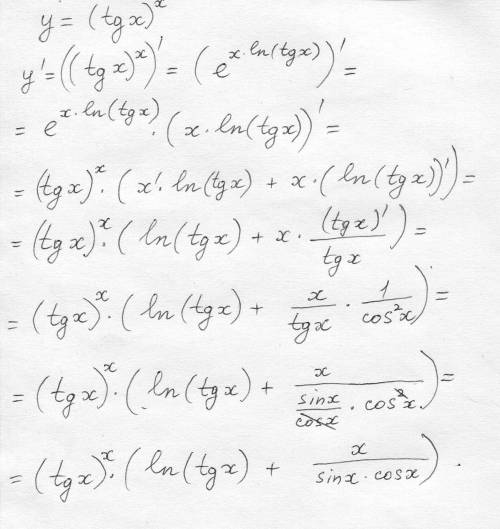 y = (tg x)^x
y' = ((tg x)^x)' = (e^{x·ln(tg x)})' =
= e^{x·ln(tg x)} · (x·ln(tg x))' =
= (tg x)^x · (x'·ln(tg x) + x·(ln(tg x))') =
= (tg x)^x · (ln(tg x) + x · (tg x)'/tg x) =
= (tg x)^x · (ln(tg x) + x/tg x · 1/cos²x) =
= (tg x)^x · (ln(tg x) + x/(sin x/cos x · cos²x)) =
= (tg x)^x · (ln(tg x) + x/(sin x · cos x)).